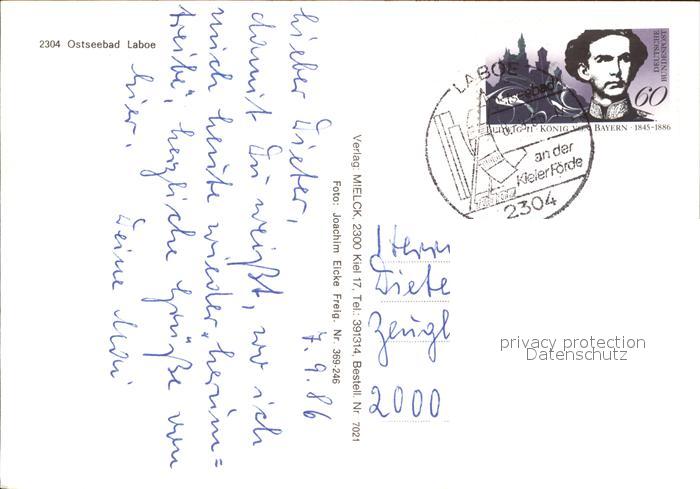 2304 Ostseebad Laboe
7.9.86
Lieber Dieter,
damit Du weißt, wo ich
mich heute wieder „herum=
treibe“, herzliche Grüße von
hier.
Deine
Verlag: MIELCK, 2300 Kiel 17, Tel.: 391314, Bestell. Nr. 7021
Foto: Joachim Eicke Freig. Nr. 369-246
DEUTSCHE
BUNDESPOST
60
LUDWIG II · KÖNIG VON BAYERN · 1845-1886
LABOE
Ostseebad
an der
Kieler Förde
2304
Herrn
Diete
Zeugl
2000
privacy protection
Datenschutz